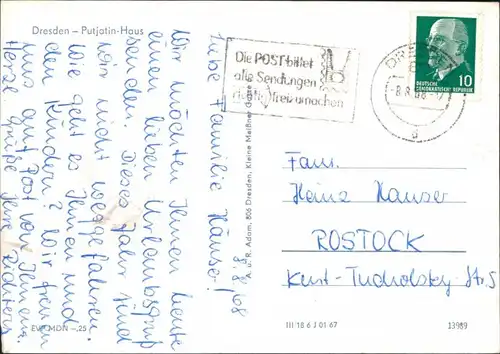 Dresden – Putjatin-Haus
8. 8. 68
Liebe Familie Häuser!
Wir möchten Ihnen heute
einen lieben Urlaubsgruß
senden. Dieses Jahr sind
wir nicht weggefahren.
Wie geht es Ihnen und
den Kindern? Wir freuen
uns auf Post von Ihnen.
Herzl. Grüße Ihre
EVP MDN -,25
A. u. R. Adam, 806 Dresden, Kleine Meißner Gasse
Die POST bittet
alle Sendungen
freizumachen
DEUTSCHE
DEMOKRATISCHE REPUBLIK
10
Fam.
Heinz Hauser
ROSTOCK
Kurt-Tucholsky-Str. 5
III 18 6 J 01 67
13989